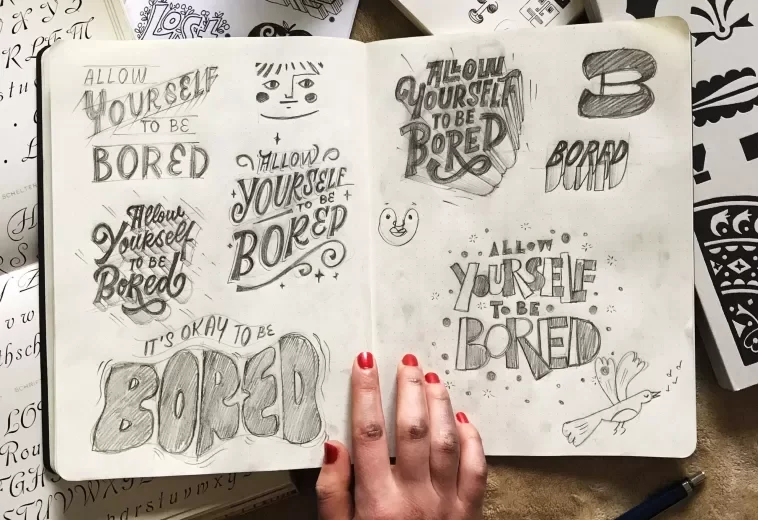 ALLOW
YOURSELF
TO BE
BORED
ALLOW
YOURSELF
TO BE
BORED
Allow
Yourself
TO BE
Bored
IT'S OKAY TO BE
BORED
ALLOW
YOURSELF
TO BE
BORED
B
BORED
ALLOW
YOURSELF
TO BE
BORED
LOST